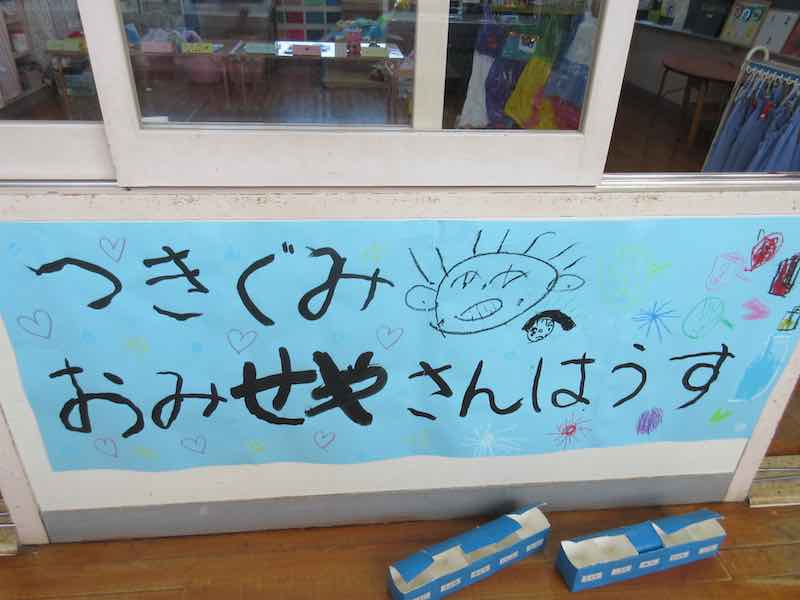 つきぐみ
おみせやさんはうす